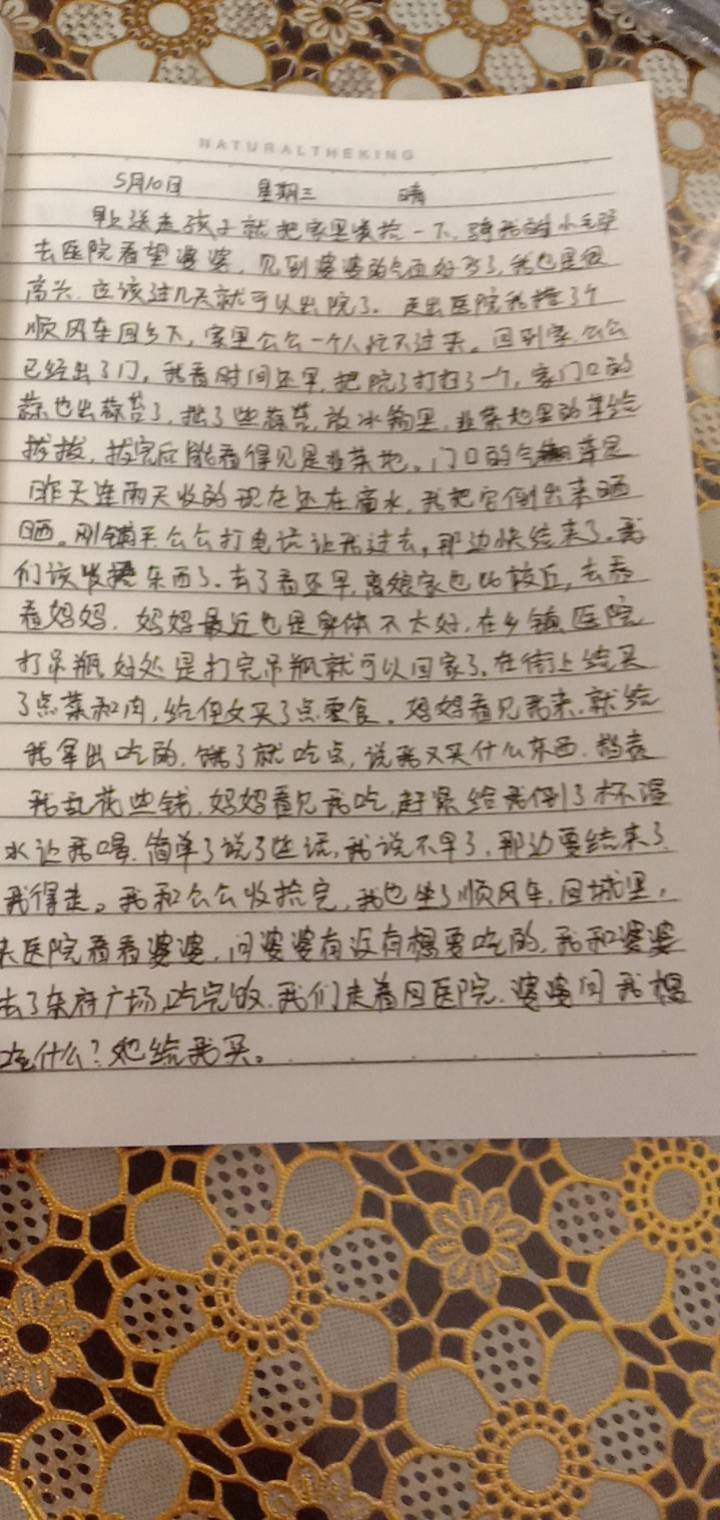 NATURALTHEKING
5月10日 星期三 晴
早上送走孩子就把家里收拾一下，骑我的小毛驴
去医院看望婆婆，见到婆婆的气色好多了，我也是很
高兴，应该过几天就可以出院了。走出医院我搭了个
顺风车回乡下，家里公公一个人忙不过来。回到家公公
已经出了门，我看时间还早，把院子打扫了一下，家门口的
蒜也出蒜苔了，拔了些蒜苔，放冰箱里，韭菜地里的草给
拔拔，拔完后能看得见是韭菜地。门口的
昨天连雨天收的现在还在滴水，我把它倒出来晒
晒。刚铺平公公打电话让我过去，那边快结束了，我
们该收 东西了。去了看还早，离娘家也比较近，去看
看妈妈，妈妈最近也是身体不太好，在乡镇医院
打吊瓶，好处是打完吊瓶就可以回家了。在街上给买
了点菜和肉，给侄女买了点零食。妈妈看见我来，就给
我拿出吃的，饿了就吃点，说我又买什么东西，
我乱花些钱，妈妈看见我吃，赶紧给我倒了杯温
水让我喝，简单了说了些话，我说不早了，那边要结束了
我得走。我和公公收拾完，我也坐了顺风车，回城里，
来医院看看婆婆，问婆婆有没有想要吃的，我和婆婆
去了东府广场，吃完饭，我们走着回医院，婆婆问我想
吃什么？她给我买。